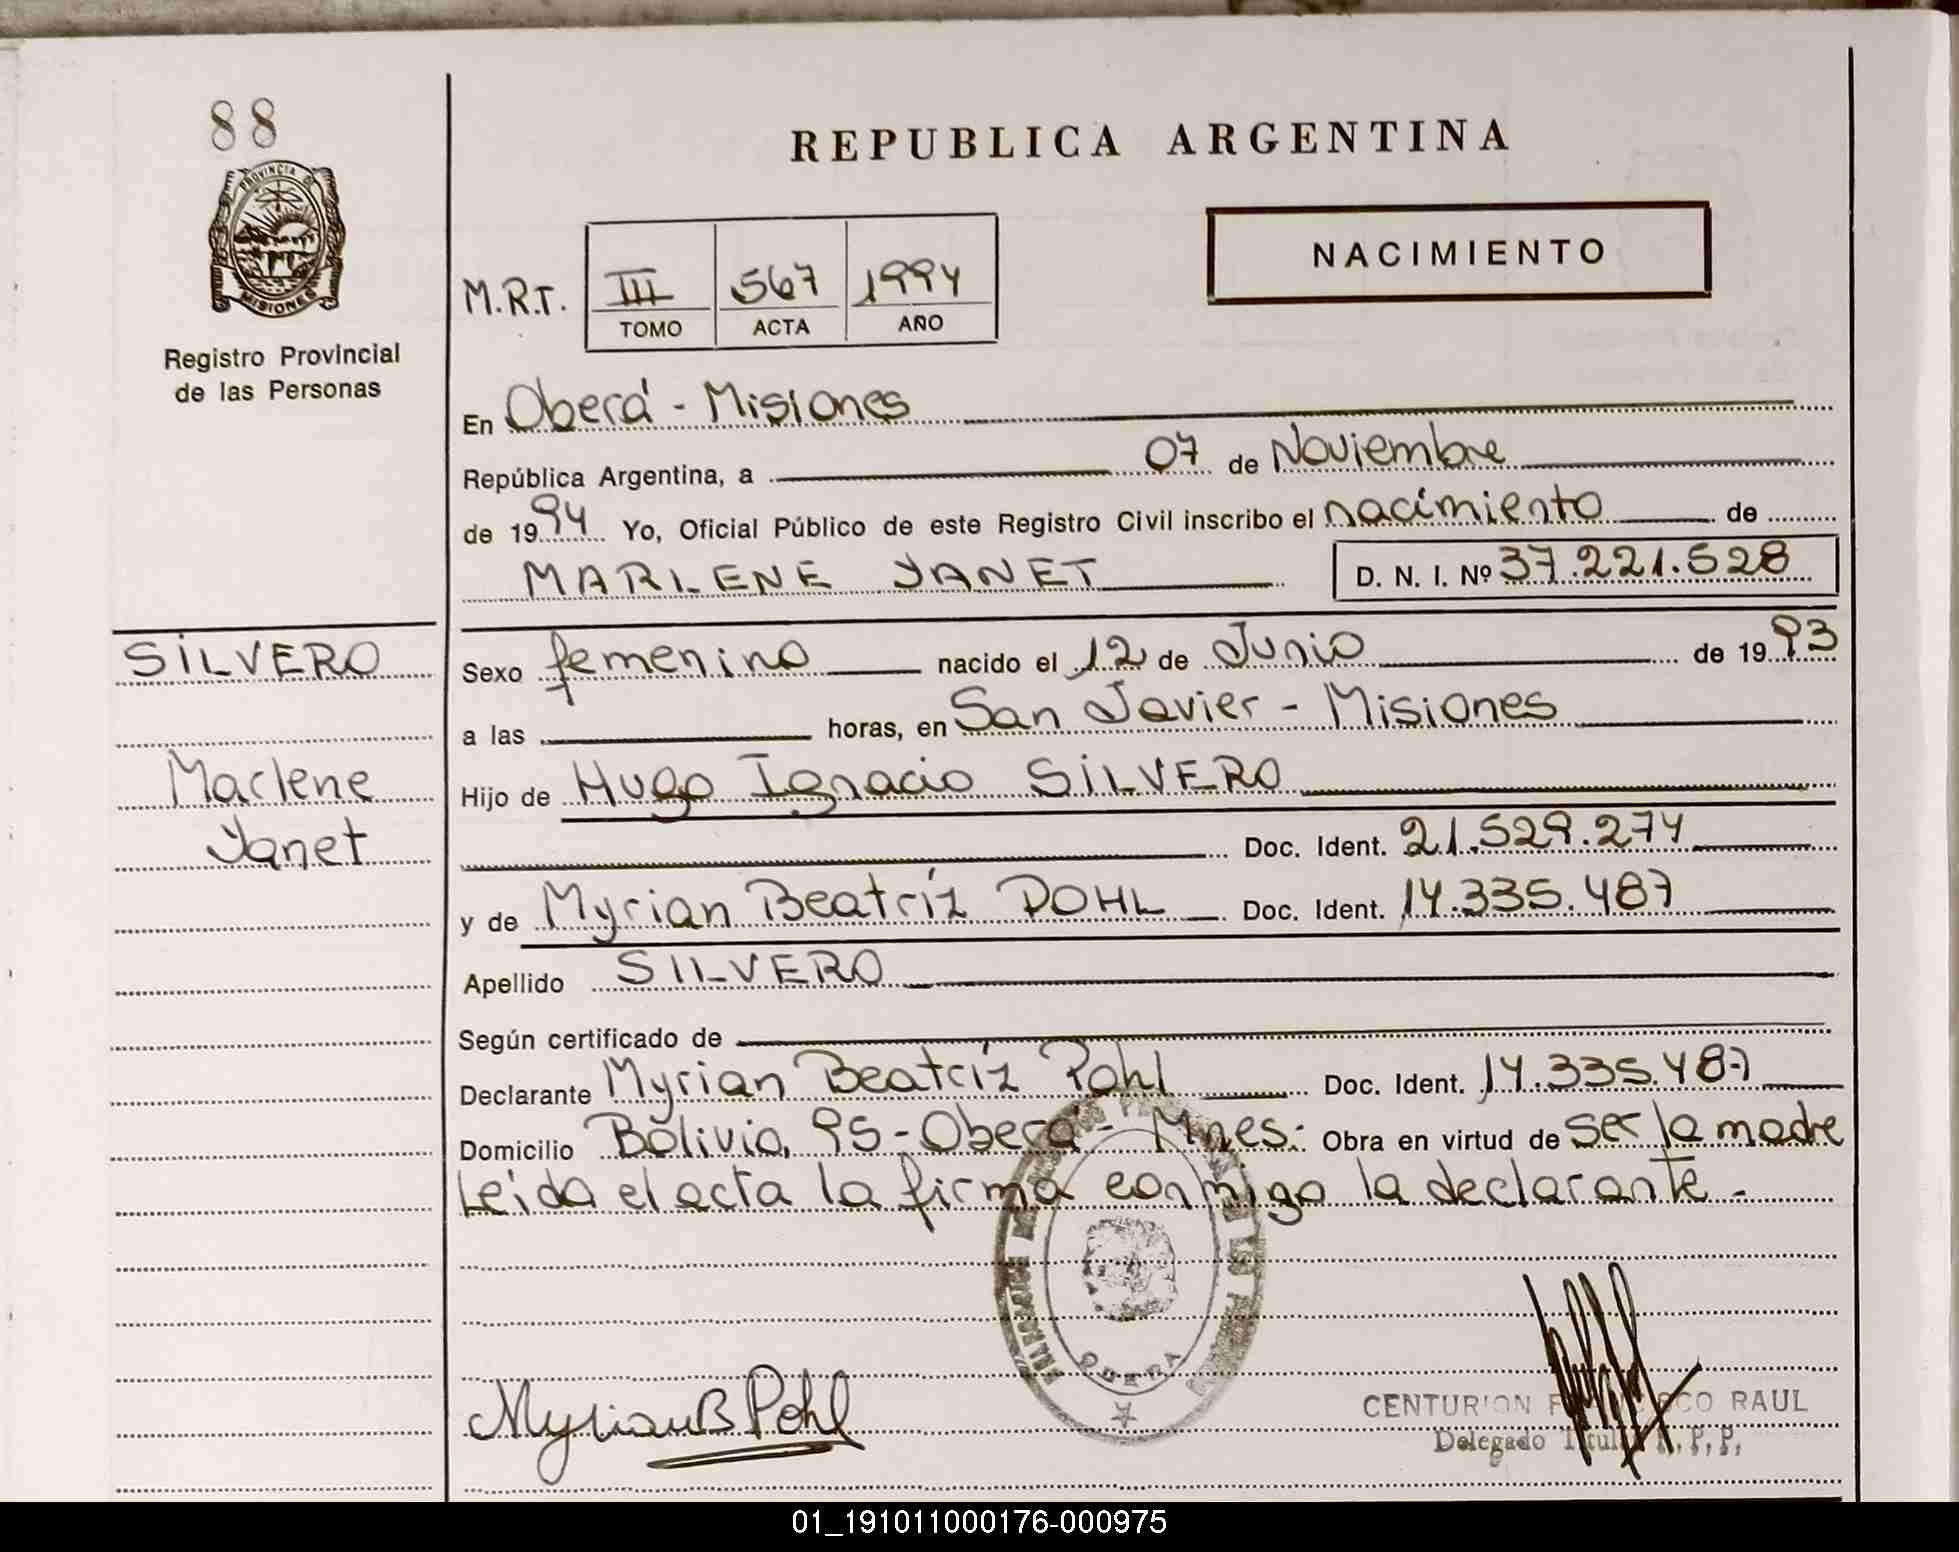 88
PROVINCIA DE
MISIONES
Registro Provincial
de las Personas
REPUBLICA ARGENTINA
NACIMIENTO
M.R.T. III 567 1994
TOMO ACTA AÑO
En Oberá - Misiones
República Argentina, a 07 de Noviembre
de 1994 Yo, Oficial Público de este Registro Civil inscribo el nacimiento de
MARLENE YANET D. N. I. Nº 37.221.528
SILVERO
Marlene
Yanet
Sexo femenino nacido el 12 de Junio de 1993
a las horas, en San Javier - Misiones
Hijo de Hugo Ignacio SILVERO
Doc. Ident. 21.529.274
y de Myrian Beatríz POHL Doc. Ident. 14.335.487
Apellido SILVERO
Según certificado de
Declarante Myrian Beatríz Pohl Doc. Ident. 14.335.487
Domicilio Bolivia, 95 - Oberá - Mnes. Obra en virtud de ser la madre
Leida el acta la firma conmigo la declarante.-
OBERA
Myrian B Pohl
CENTURION RAUL
Delegado
01_191011000176-000975